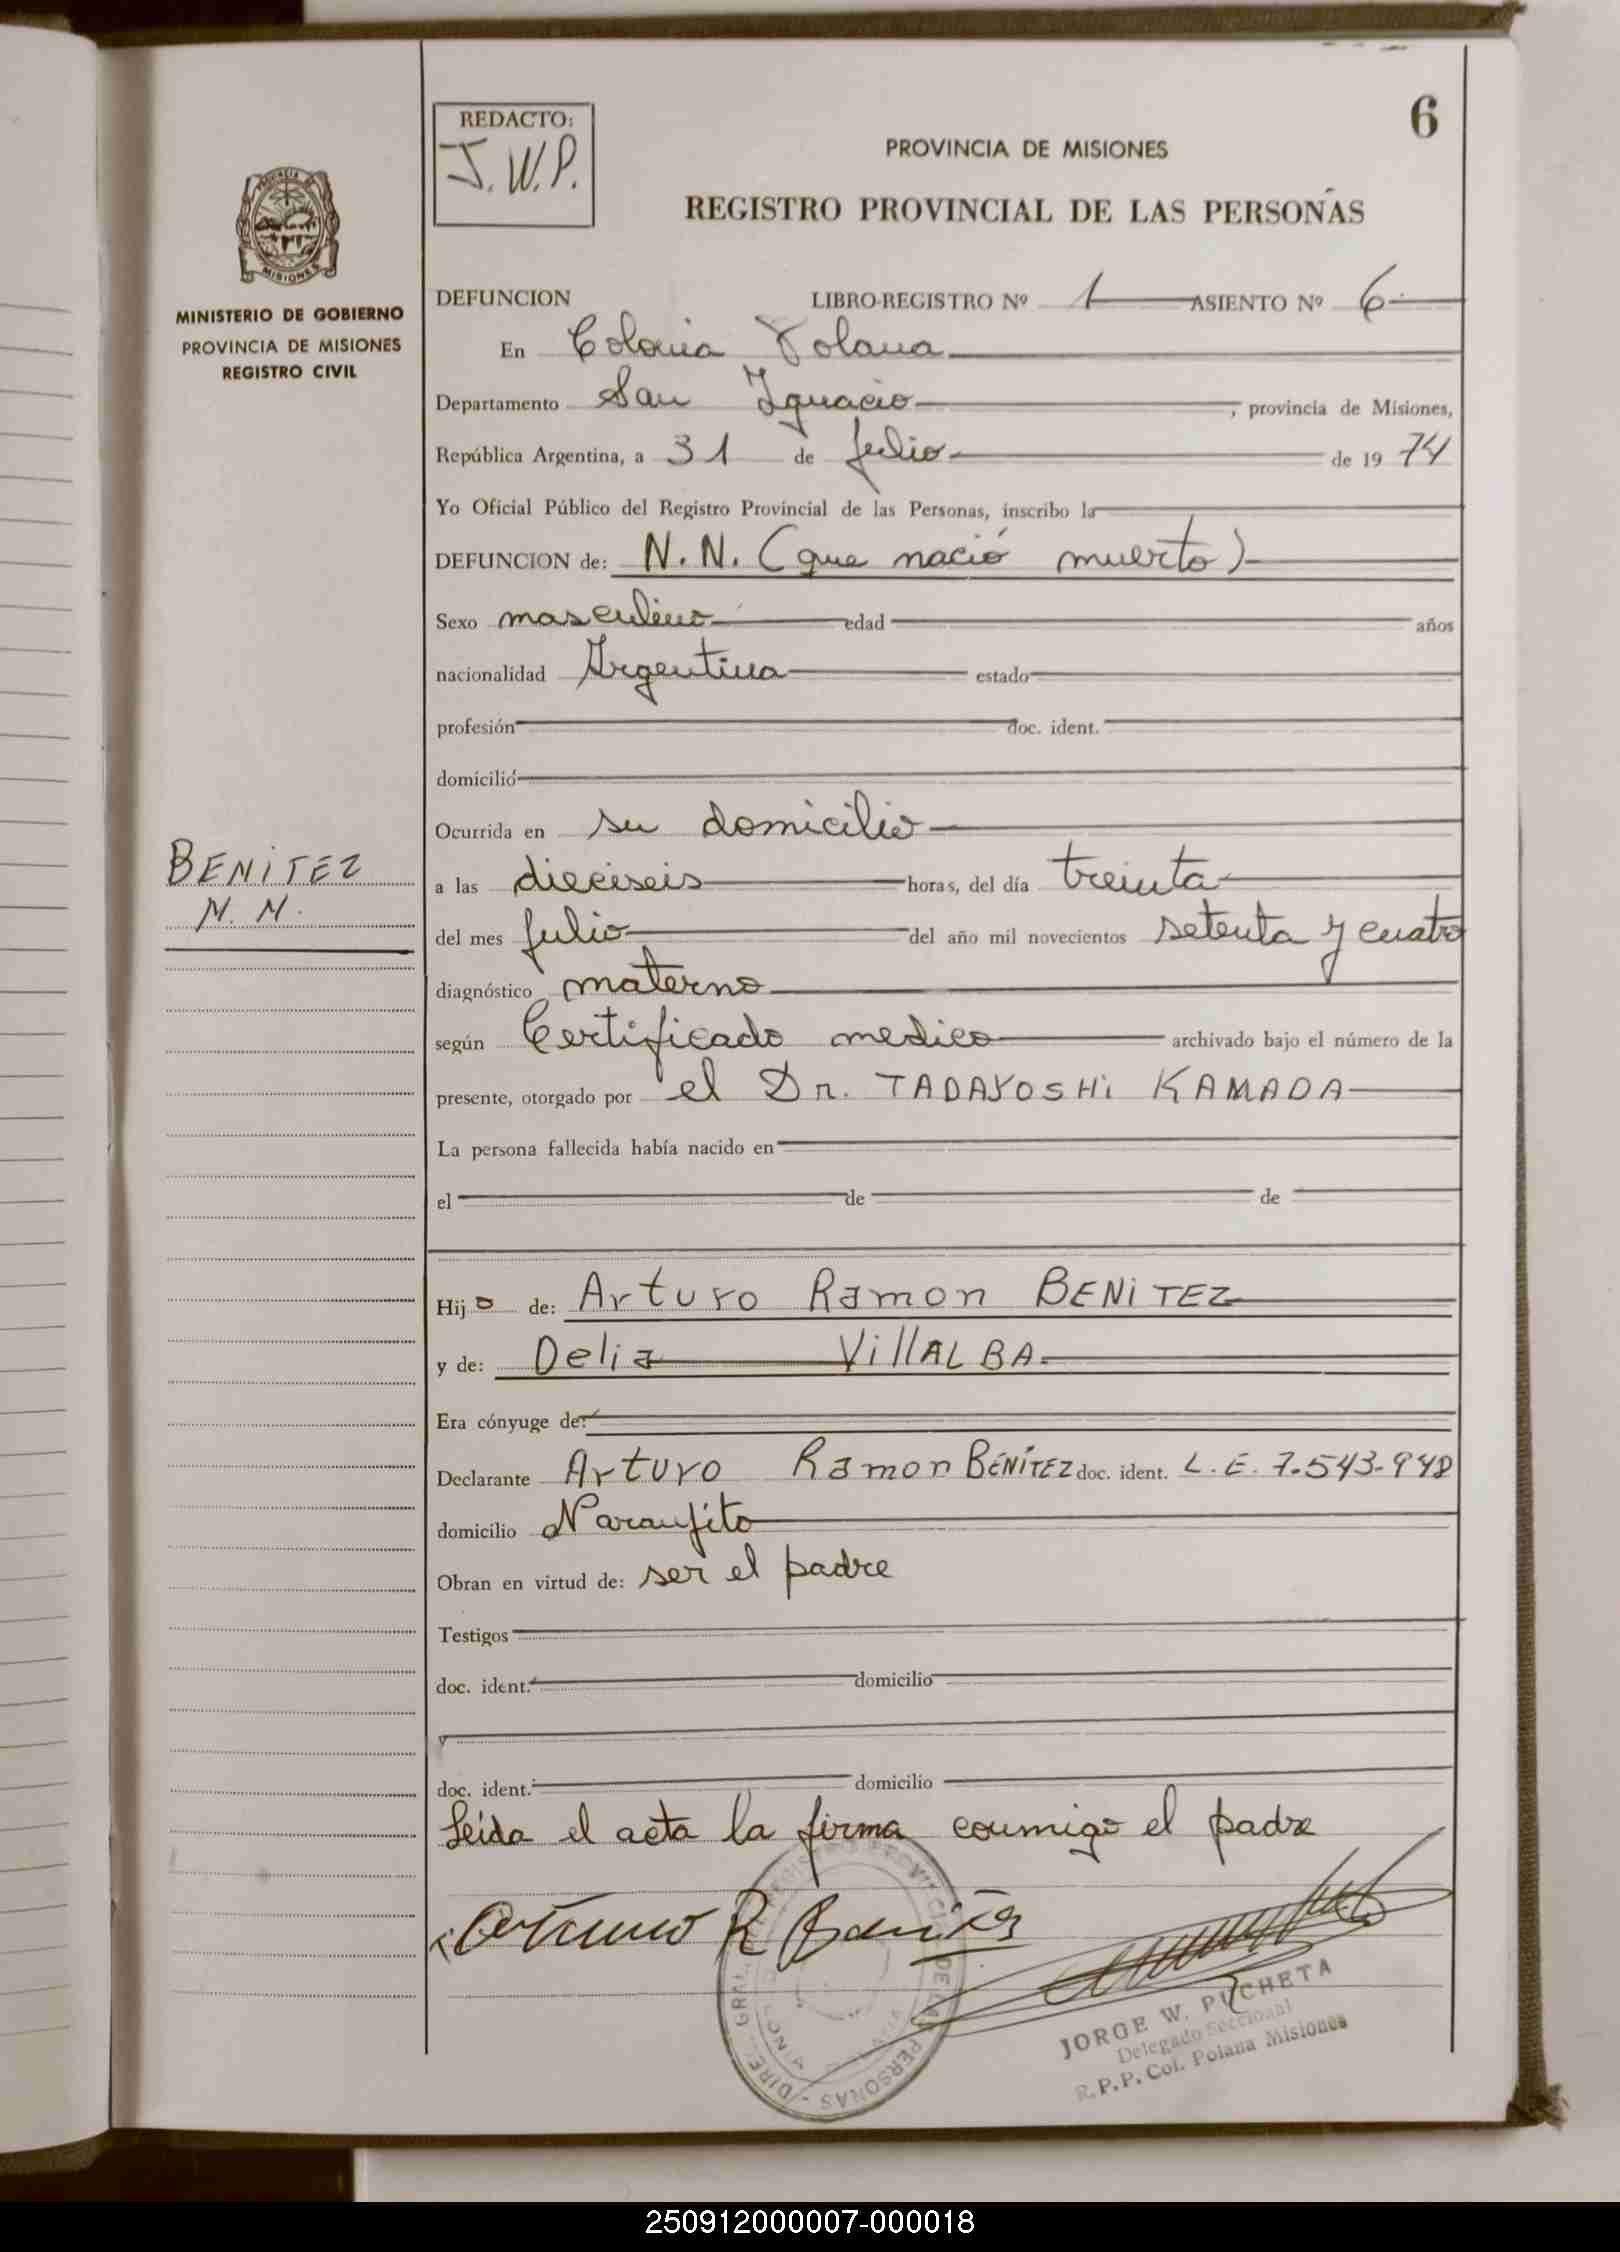 6
REDACTO:
J.W.P.
PROVINCIA DE MISIONES
REGISTRO PROVINCIAL DE LAS PERSONAS
MISIONES
MINISTERIO DE GOBIERNO
PROVINCIA DE MISIONES
REGISTRO CIVIL
DEFUNCION LIBRO-REGISTRO Nº 1 ASIENTO Nº 6
En Colonia Polana
Departamento San Ignacio, provincia de Misiones,
República Argentina, a 31 de julio de 1974
Yo Oficial Público del Registro Provincial de las Personas, inscribo la
DEFUNCION de: N.N. (que nació muerto)
Sexo masculino edad años
nacionalidad Argentina estado
profesión doc. ident.
domicilio
Ocurrida en su domicilio
BENITEZ
N. N.
a las dieciseis horas, del día treinta
del mes julio del año mil novecientos setenta y cuatro
diagnóstico materno
según Certificado medico archivado bajo el número de la
presente, otorgado por el Dr. TADAYOSHi KAMADA
La persona fallecida había nacido en
el de de
Hijo de: Arturo Ramon BENiTEZ
y de: Delia VillALBA.
Era cónyuge de:
Declarante Arturo Ramon BENÍTEZ doc. ident. L.E. 7.543.948
domicilio Naranjito
Obran en virtud de: ser el padre
Testigos
doc. ident. domicilio
y
doc. ident. domicilio
Leida el acta la firma conmigo el padre
Arturo R Benitez
JORGE W. PUCHETA
Delegado Seccional
R.P.P. Col. Polana Misiones
250912000007-000018